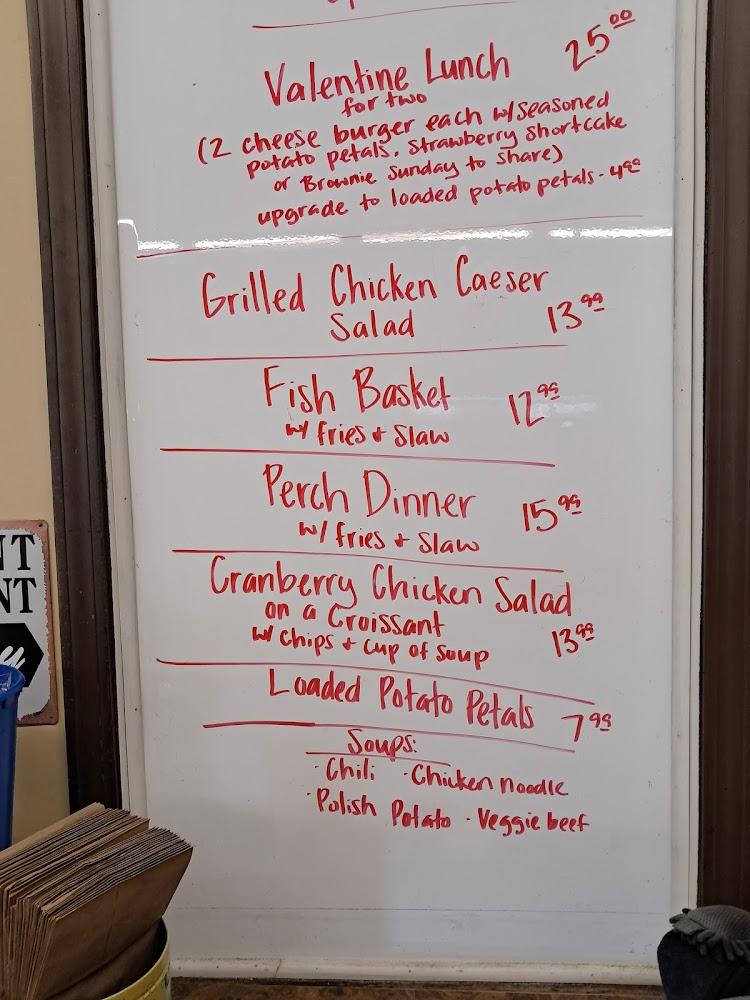 Valentine Lunch 25.00
for two
(2 cheese burger each w/seasoned
potato petals, strawberry shortcake
or Brownie Sunday to share)
upgrade to loaded potato petals - 4.99
Grilled Chicken Caeser
Salad 13.99
Fish Basket 12.99
w/ fries + Slaw
Perch Dinner 15.99
w/ fries + Slaw
Cranberry Chicken Salad
on a Croissant
w/ chips + cup of soup 13.99
Loaded Potato Petals 7.99
Soups:
· Chili · Chicken noodle
· Polish Potato · Veggie beef
NT
NT